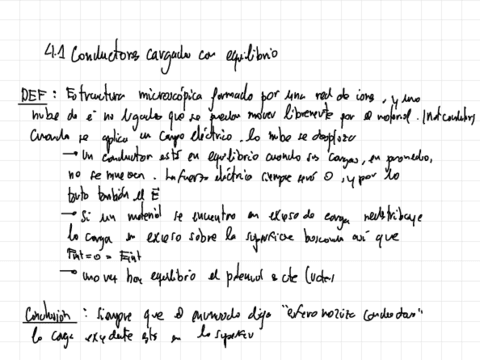 4.1 Conductores cargados en equilibrio
DEF: Estructura microscópica formado por una red de iones, y una
nube de e⁻ no ligados que se pueden mover libremente por el material. (not conductors)
Cuando se aplica un campo eléctrico, la nube se desplaza
→ Un conductor está en equilibrio cuando sus cargas, en promedio,
no se mueven. La fuerza eléctrica siempre será 0, y por lo
tanto también el E
→ Si un material se encuentra en exceso de carga redistribuye
la carga en exceso sobre la superficie buscando así que
Fint=0=Eint
→ una vez hay equilibrio el potencial es cte
Conclusión: Siempre que el enunciado diga "esfera maciza conductora"
la carga excedente está en la superficie